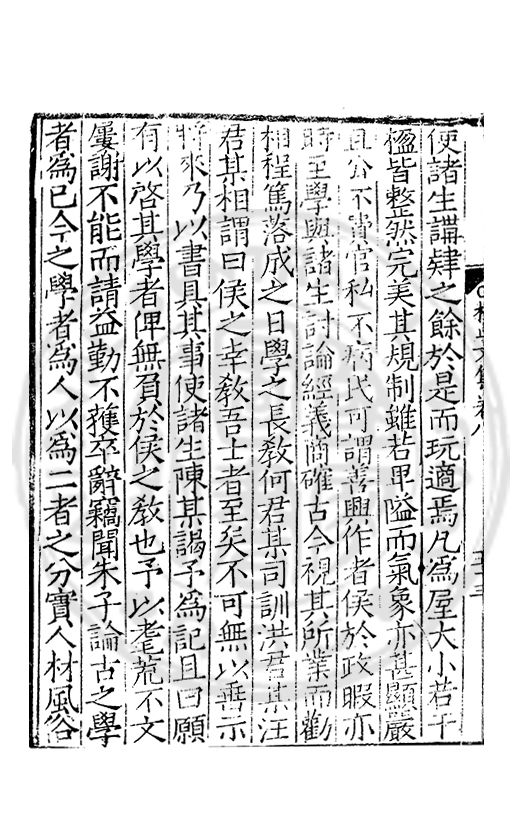 使諸生講肄之餘於是而玩適焉凡為屋大小若干
楹皆整然完美其規制雖若卑隘而氣象亦甚顯嚴
且公不費官私不病民可謂善興作者侯於政暇亦
時至學與諸生討論經義商確古今視其所業而勸
相程篤落成之日學之長教何君某司訓洪君某汪
君某相謂曰侯之幸教吾士者至矣不可無以垂示
將來乃以書具其事使諸生陳某謁予為記且曰願
有以啓其學者俾無負於侯之教也予以耄荒不文
屢謝不能而請益勤不獲卒辭竊聞朱子論古之學
者為已今之學者為人以為二者之分實人材風俗